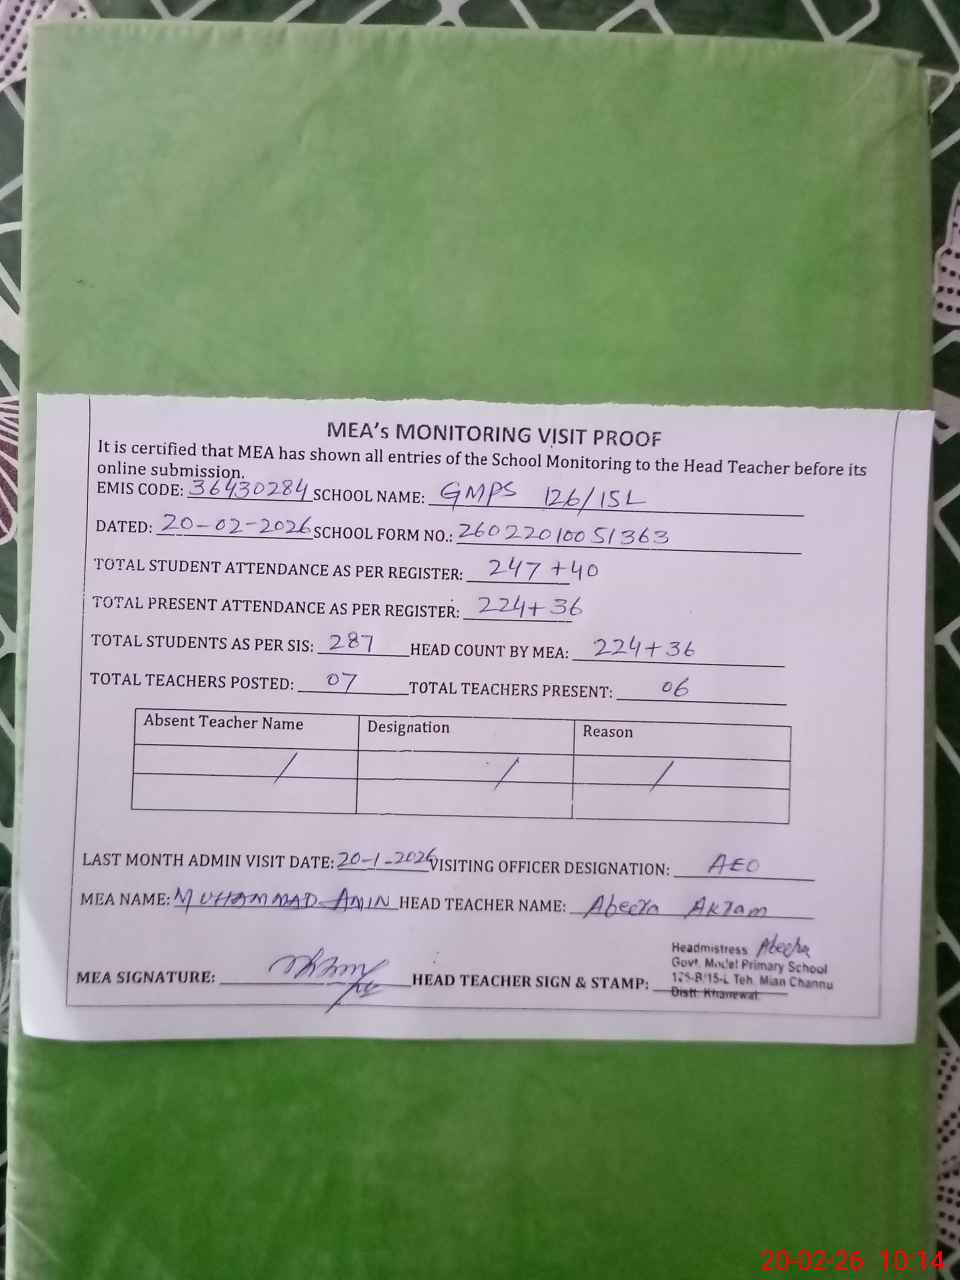 MEA's MONITORING VISIT PROOF
It is certified that MEA has shown all entries of the School Monitoring to the Head Teacher before its
online submission.
EMIS CODE: 36430284 SCHOOL NAME: GMPS 126/15L
DATED: 20-02-2026 SCHOOL FORM NO.: 26022010051363
TOTAL STUDENT ATTENDANCE AS PER REGISTER: 247 +40
TOTAL PRESENT ATTENDANCE AS PER REGISTER: 224+36
TOTAL STUDENTS AS PER SIS: 287 HEAD COUNT BY MEA: 224+36
TOTAL TEACHERS POSTED: 07 TOTAL TEACHERS PRESENT: 06
Absent Teacher Name Designation Reason
/ / /
LAST MONTH ADMIN VISIT DATE: 20-1-2026 VISITING OFFICER DESIGNATION: AEO
MEA NAME: MUHAMMAD AMIN HEAD TEACHER NAME: Abeera Akram
Headmistress Abeera
Govt. Model Primary School
MEA SIGNATURE: HEAD TEACHER SIGN & STAMP:
Teh. Mian Channu
Distt. Khanewal
20-02-26 10:14